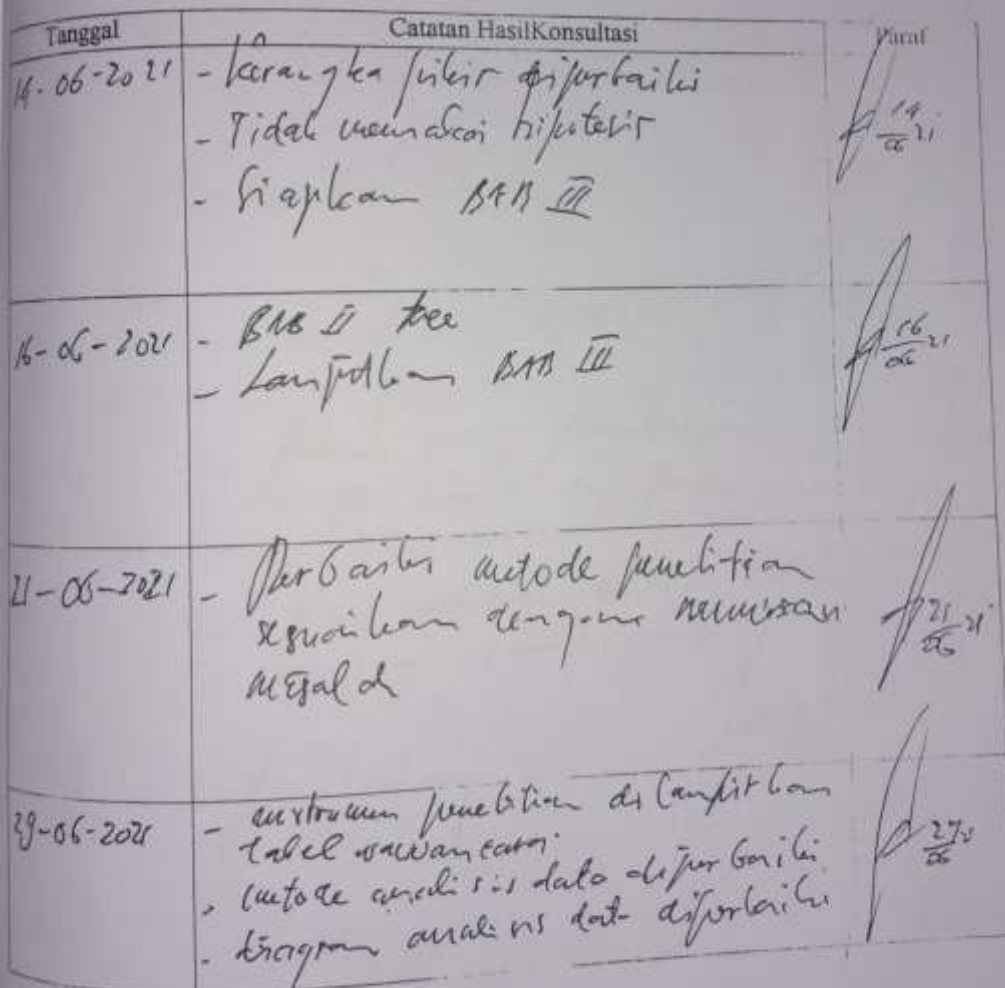 Tanggal Catatan HasilKonsultasi Paraf
14-06-2021 - Kerangka pikir diperbaiki
- Tidak memakai hipotesis
- Siapkan BAB III
14/06 21
16-06-2021 - BAB II acc
- Lanjutkan BAB III
16/06 21
21-06-2021 - Perbaiki metode penelitian
sesuaikan dengan rumusan
masalah
21/06 21
29-06-2021 - instrumen penelitian di lampirkan
tabel wawancara
- metode analisis data diperbaiki
- diagram analisis data diperbaiki